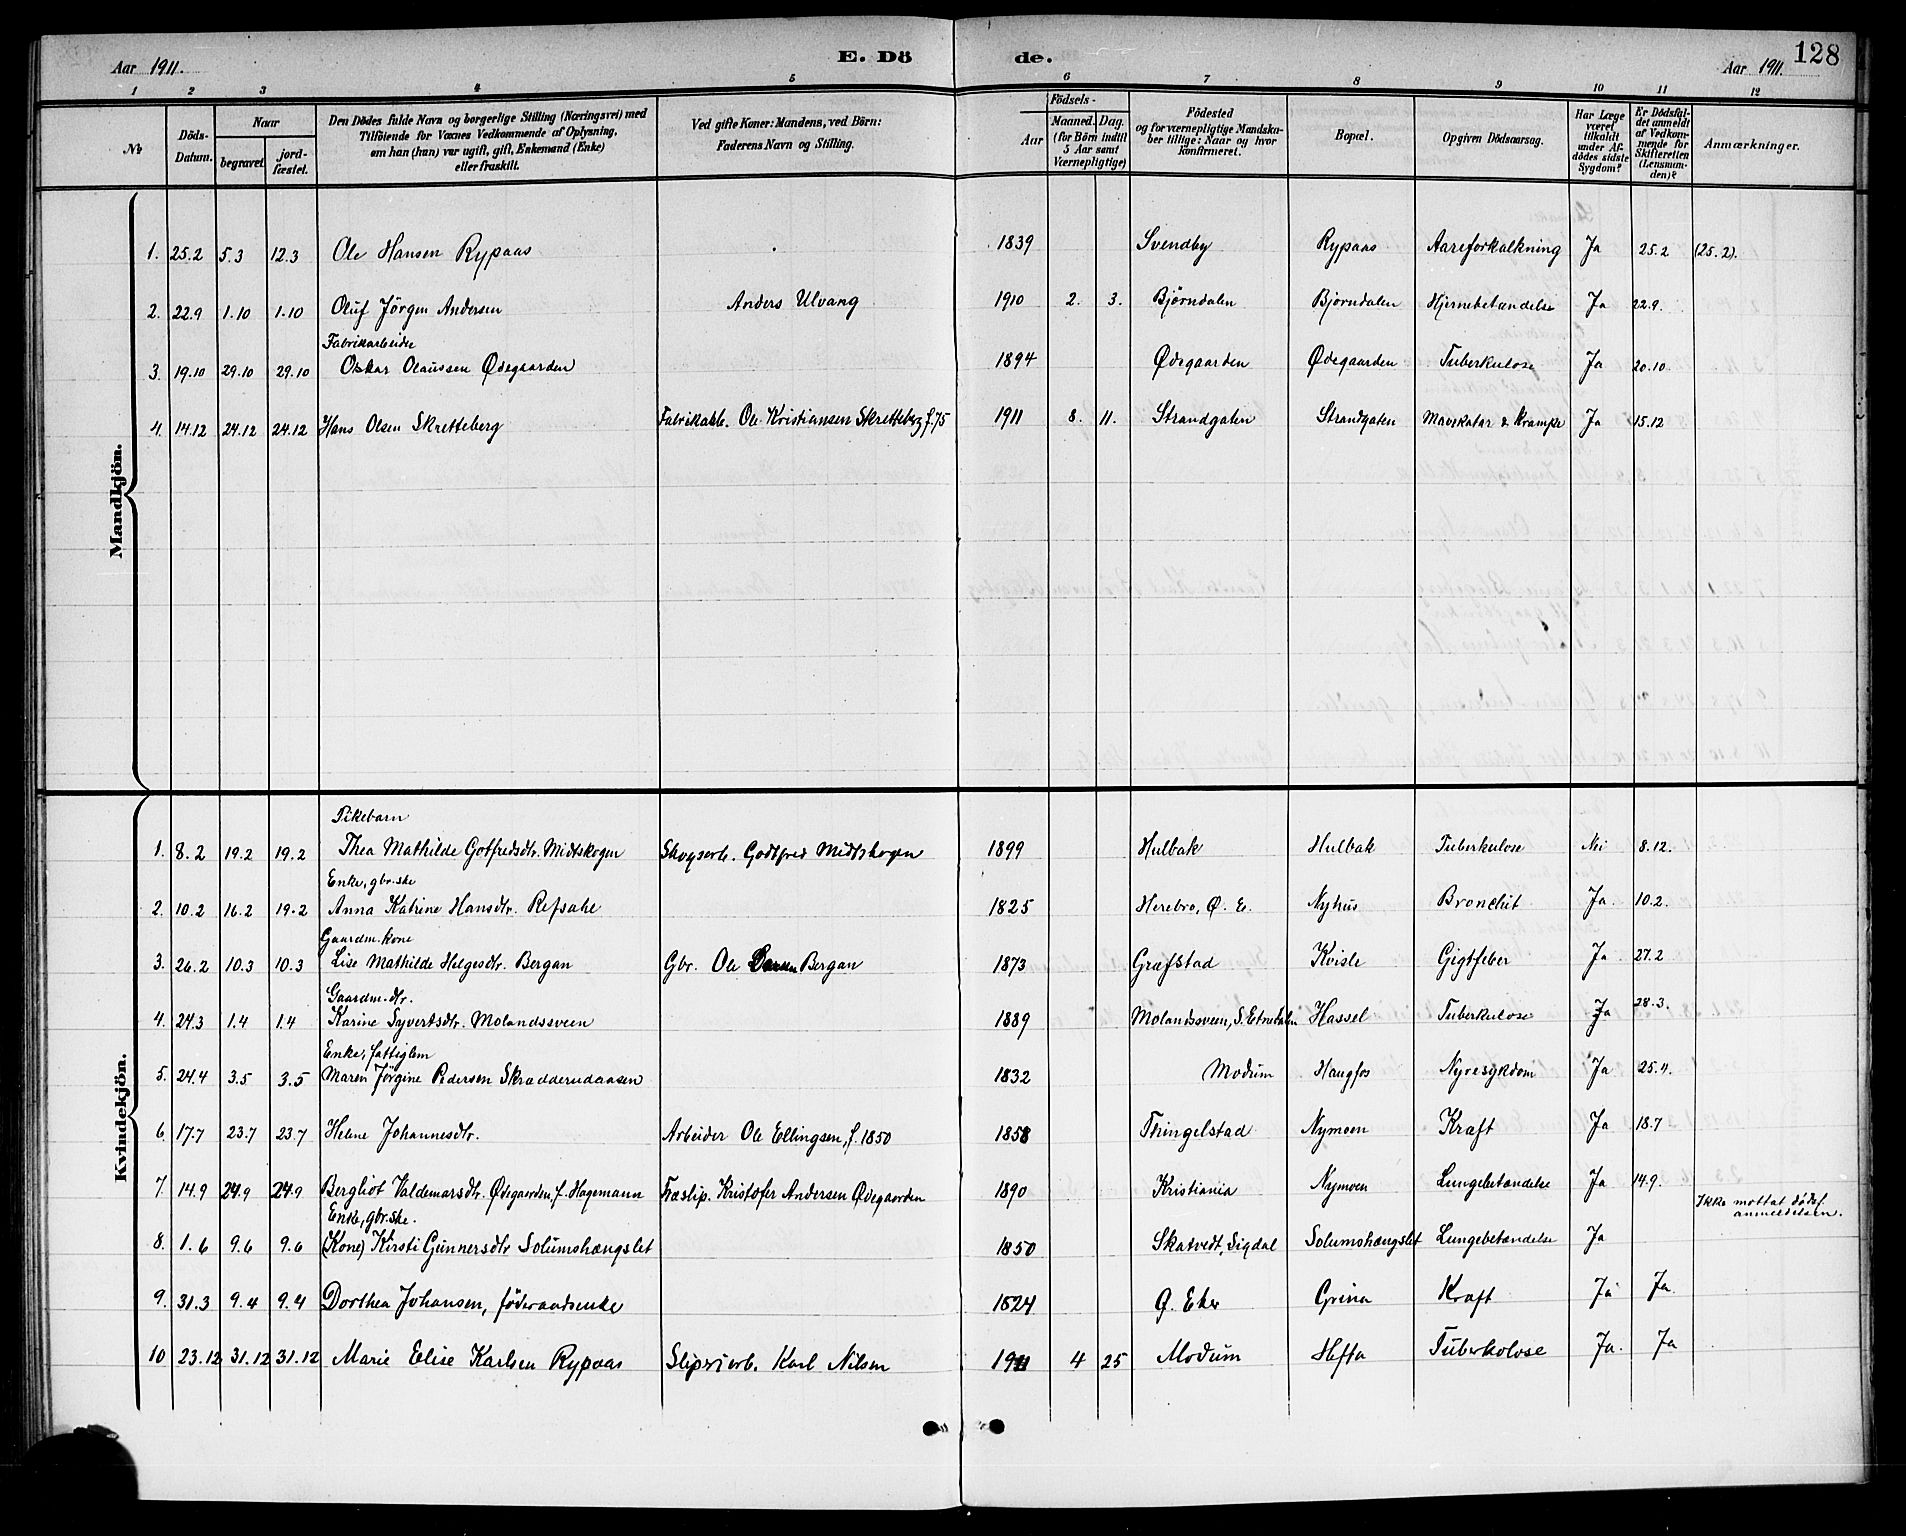 Aar 1911. E. Dö de. Aar 1911. 128
1 2 3 4 5 6 7 8 9 10 11 12
No Döds-Datum. Naar begravet. jord-fæstet. Den Dödes fulde Navn og borgerlige Stilling (Næringsvei) med Tilföiende for Voxnes Vedkommende af Oplysning, om han (hun) var ugift, gift, Enkemand (Enke) eller fraskilt. Ved gifte Koner: Mandens, ved Börn: Faderens Navn og Stilling. Födsels- Aar Maaned. Dag. (for Börn indtil 5 Aar samt Værnepligtige) Födested og for værnepligtige Mandskaber tillige: Naar og hvor konfirmeret. Bopæl. Opgiven Dödsaarsag. Har Læge været tilkaldt under Afdödes sidste Sygdom? Er Dödsfaldet anmeldt af Vedkommende for Skifteretten (Lensmanden)? Anmærkninger.
Mandkjön.
1. 25.2 5.3 12.3 Ole Hansen Rypaas 1839 Svendby Rypaas Aareforkalkning Ja 25.2 (25.2).
2. 22.9 1.10 1.10 Oluf Jörgen Andersen Anders Ulvang 1910 2. 3. Bjørndalen Bjørndalen Hjernebetændelse Ja 22.9.
Fabrikarbeider
3. 19.10 29.10 29.10 Oskar Olaussen Ødegaarden 1894 Ødegaarden Ødegaarden Tuberkulose Ja 20.10.
4. 14.12 24.12 24.12 Hans Olsen Skretteberg Fabrikarb. Ole Kristiansen Skretteberg f. 75 1911 8. 11. Strandgaten Strandgaten Mavekatar & Krampe Ja 15.12
Kvindekjön.
Pikebarn
1. 8.2 19.2 19.2 Thea Mathilde Gotfredsdtr. Midtskogen Skogsarb. Godtfred Midtskogen 1899 Hulbak Hulbak Tuberkulose Nei 8.12.
Enke, gbr.ske
2. 10.2 16.2 19.2 Anna Katrine Hansdtr. Refsahe 1825 Herebro, Ø. E. Nyhus Bronchit Ja. 10.2.
Gaardm. kone
3. 26.2 10.3 10.3 Lise Mathilde Helgesdtr. Bergan Gbr. Ole Bergan 1873 Græfstad Kvisle Gigtfeber Ja 27.2
Gaardm. dtr.
4. 24.3 1.4 1.4 Karine Syvertsdtr. Molandssveen 1889 Molandssveen, S. Etnedalen Hassel Tuberkulose Ja 28.3.
Enke, fattiglem
5. 24.4 3.5 3.5 Maren Jörgine Pedersen Skradderudaasen 1832 Modum Haugfos Nyresykdom Ja 25.4.
6. 17.7 23.7 23.7 Helene Johannesdtr. Arbeider Ole Ellingsen, f. 1850 1858 Thingelstad Nymoen Kræft Ja 18.7
7. 14.9 24.9 24.9 Bergliot Valdemarsdtr. Ødegaarden, f. Hagemann Træslip. Kristofer Andersen Ødegaarden 1890 Kristiania Nymoen Lungebetændelse Ja 14.9.
Enke, gbr.ske. Ikke mottat dødsf. anmeldelsen.
8. 1.6 9.6 9.6 (Kone) Kirsti Gunnersdtr Solumshængslet 1850 Skatvedt, Sigdal Solumshængslet Lungebetændelse Ja
9. 31.3 9.4 9.4 Dorthea Johansen, føderaadsenke 1824 Ø. Eker Grina Kræft Ja Ja
10 23.12 31.12 31.12 Marie Elise Karlsen Rypaas Sliperiarb. Karl Nilsen 1911 4 25 Modum Hefta Tuberkolose Ja. Ja